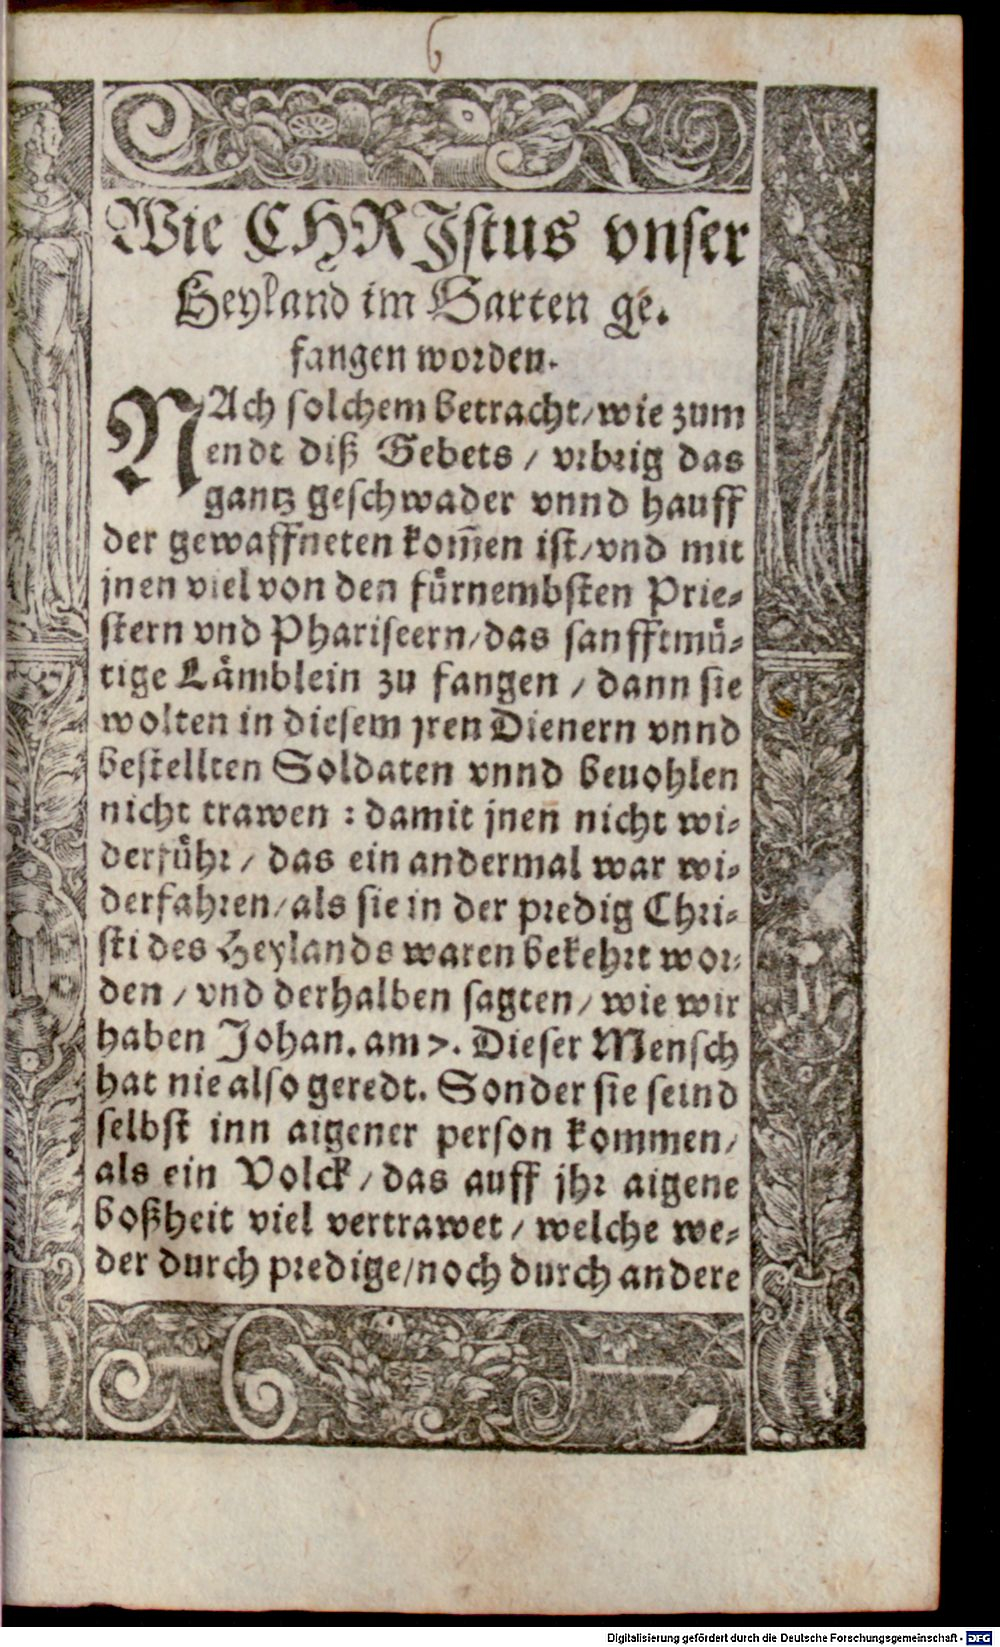 6
Wie CHRJstus vnser
Heyland im Garten ge.
fangen worden.
NAch solchem betracht/wie zum
endt diß Gebets / vrbrig das
gantz geschwader vnnd hauff
der gewaffneten kom̄en ist/vnd mit
jnen viel von den fürnembsten Prie-
stern vnd Phariseern/das sanfftmü-
tige Lämblein zu fangen / dann sie
wolten in diesem jren Dienern vnnd
bestellten Soldaten vnnd beuohlen
nicht trawen : damit jnen nicht wi-
derführ / das ein andermal war wi-
derfahren/als sie in der predig Chri-
sti des Heylands waren bekehrt wor-
den / vnd derhalben sagten/ wie wir
haben Johan. am 7. Dieser Mensch
hat nie also geredt. Sonder sie seind
selbst inn aigener person kommen/
als ein Volck / das auff jhr aigene
boßheit viel vertrawet / welche we-
der durch predige/noch durch andere
Digitalisierung gefördert durch die Deutsche Forschungsgemeinschaft - DFG